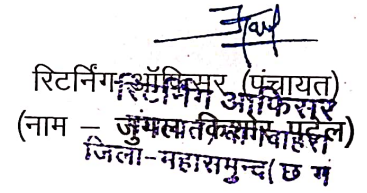 रिटर्निंग ऑफिसर (पंचायत)
रिटर्निंग आफिसर
(नाम – जुगल किशोर पटेल)
जिला-महासमुन्द (छ ग